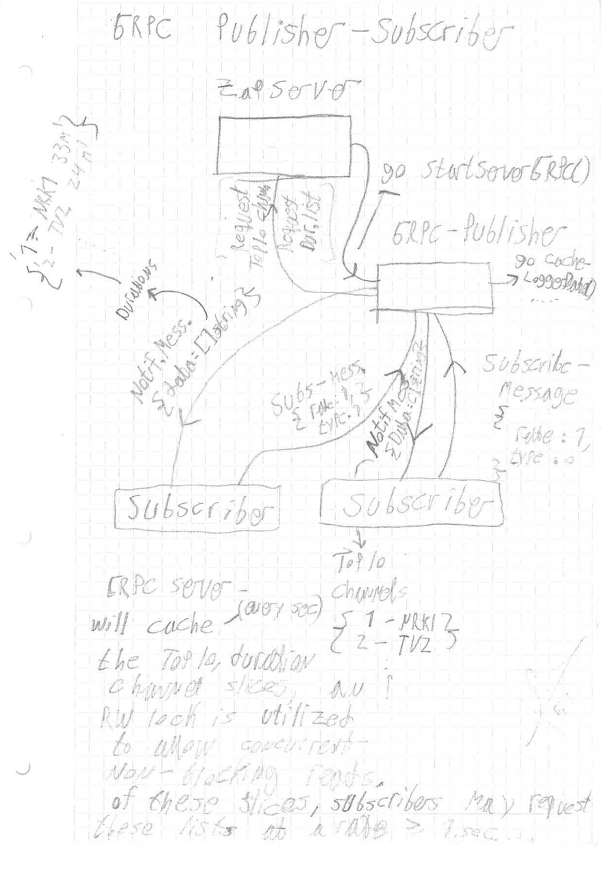 GRPC Publisher-Subscriber
Zap Server
{ 1 - NRK1 33m
2 - TV2 24m }
go startServerGRPC()
Request
Top10
Request
Dur.list
GRPC-Publisher
go cache-
LoggerData()
....
Durations
Notif.Mess.
{ data=[]string }
Subs-Mess.
{ rate: 1,
type:
Notif Mess
{ Data=[]string }
Subscribe-
Message
{
rate: 1,
type:
}
Subscriber
Subscriber
Top10
Channels
{ 1 - NRK1 }
{ 2 - TV2 }
GRPC server -
will cache (every sec)
the Top10, duration
channel slices,
RW lock is utilized
to allow concurrent-
non-blocking reads.
of these slices, subscribers may request
these lists at a rate ≥ 1.sec...